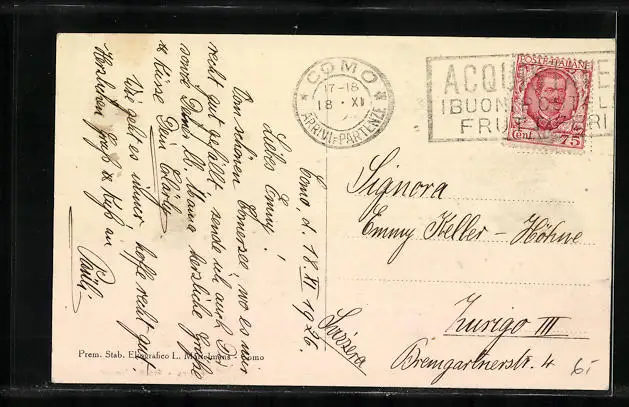 COMO
17-18
18 · XI
ARRIVI e PARTENZE
ACQU
I BUONI
FRU
POSTE ITALIANE
Cent. 75
Como d. 18. XI 1926.
Liebes Emmy!
Vom schönen Comersee, wo es mir
recht gut gefällt sende ich auch Dir
sowie Deiner lb. Mama herzliche Grüße
& Küsse Dein
Wie geht es immer, hoffe recht gut.
Herzlichen Gruß & Kuß an
Signora
Emmy Keller - Höhne
Zurigo III
Bremgartnerstr. 4
Svizzera
Prem. Stab. Eliografico L. - Como
6.-